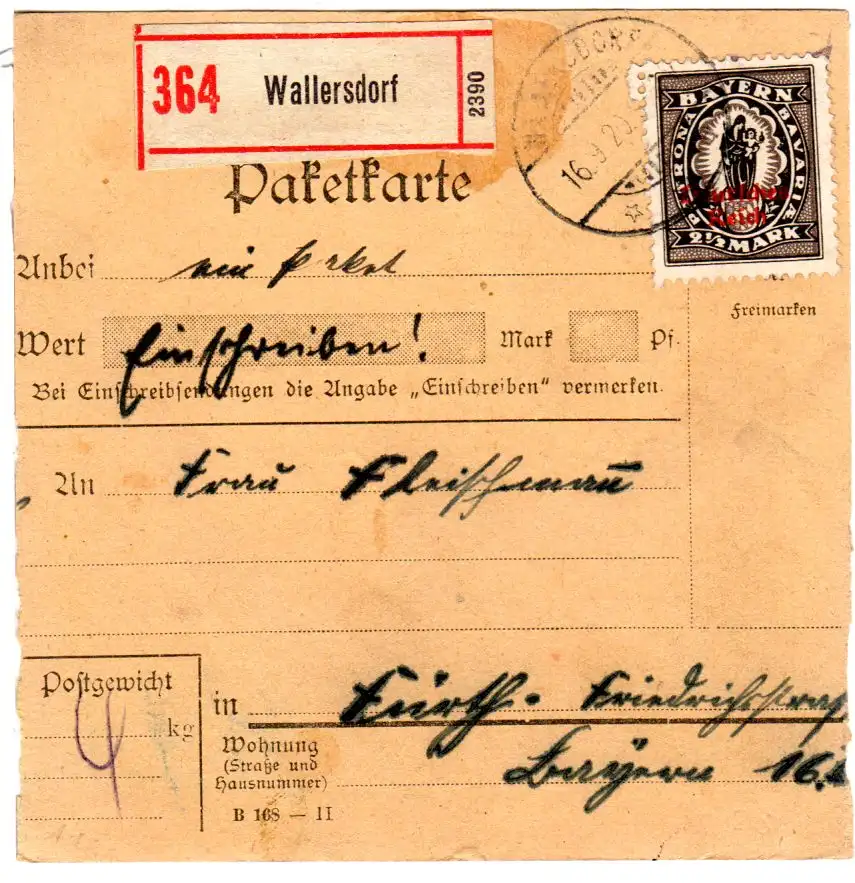 364 Wallersdorf 2390
16.9.20.
BAYERN
PATRONA BAVARIÆ
Deutsches
Reich
2½ MARK
Paketkarte
Anbei ein Paket
Freimarken
Wert Einschreiben! Mark Pf.
Bei Einschreibsendungen die Angabe „Einschreiben" vermerken.
An Frau Fleischmann
Postgewicht
4 kg
in Fürth - Friedrichsstraß
Wohnung
(Straße und
Hausnummer)
Bayern 16.
B 168 — II